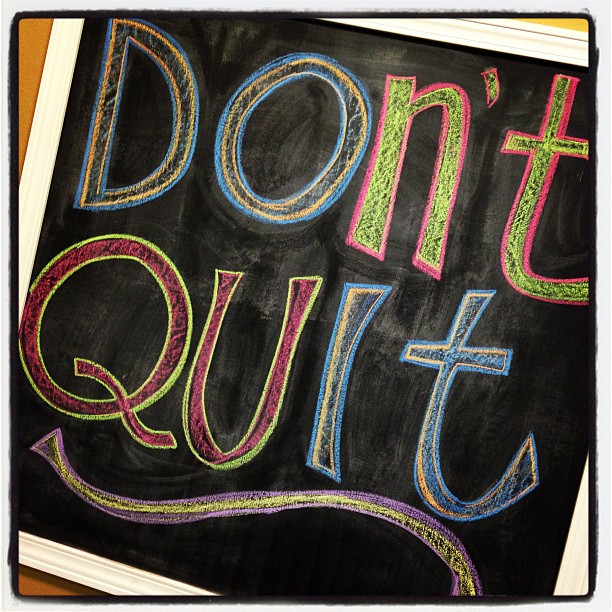 DOn't
QUIt